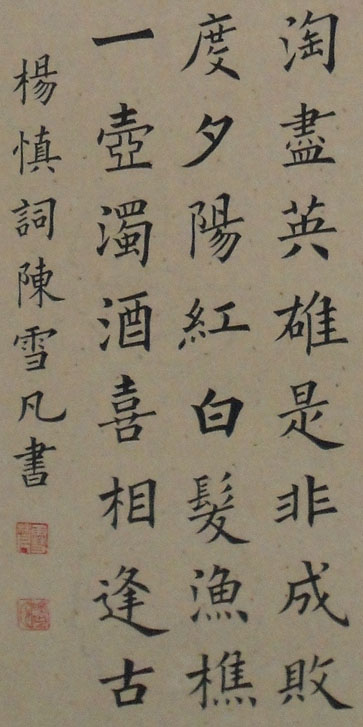 淘盡英雄是非成敗
度夕陽紅白髮漁樵
一壺濁酒喜相逢古
楊慎詞陳雪凡書